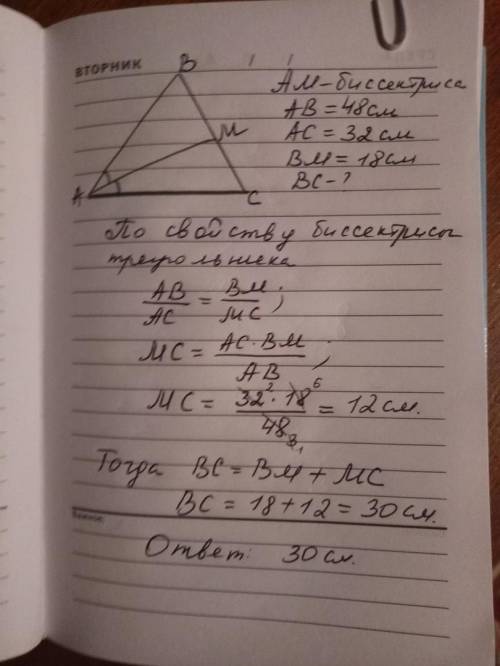 ВТОРНИК
B
M
A
C
AM-биссектриса
AB = 48см
AC = 32 см
BM = 18см
BC-?
По свойству биссектрисы
треугольника
AB/AC = BM/MC;
MC = AC·BM/AB;
MC = 32²·18⁶/48₃₁ = 12 см.
Тогда BC = BM + MC
BC = 18+12 = 30 см.
Ответ: 30 см.